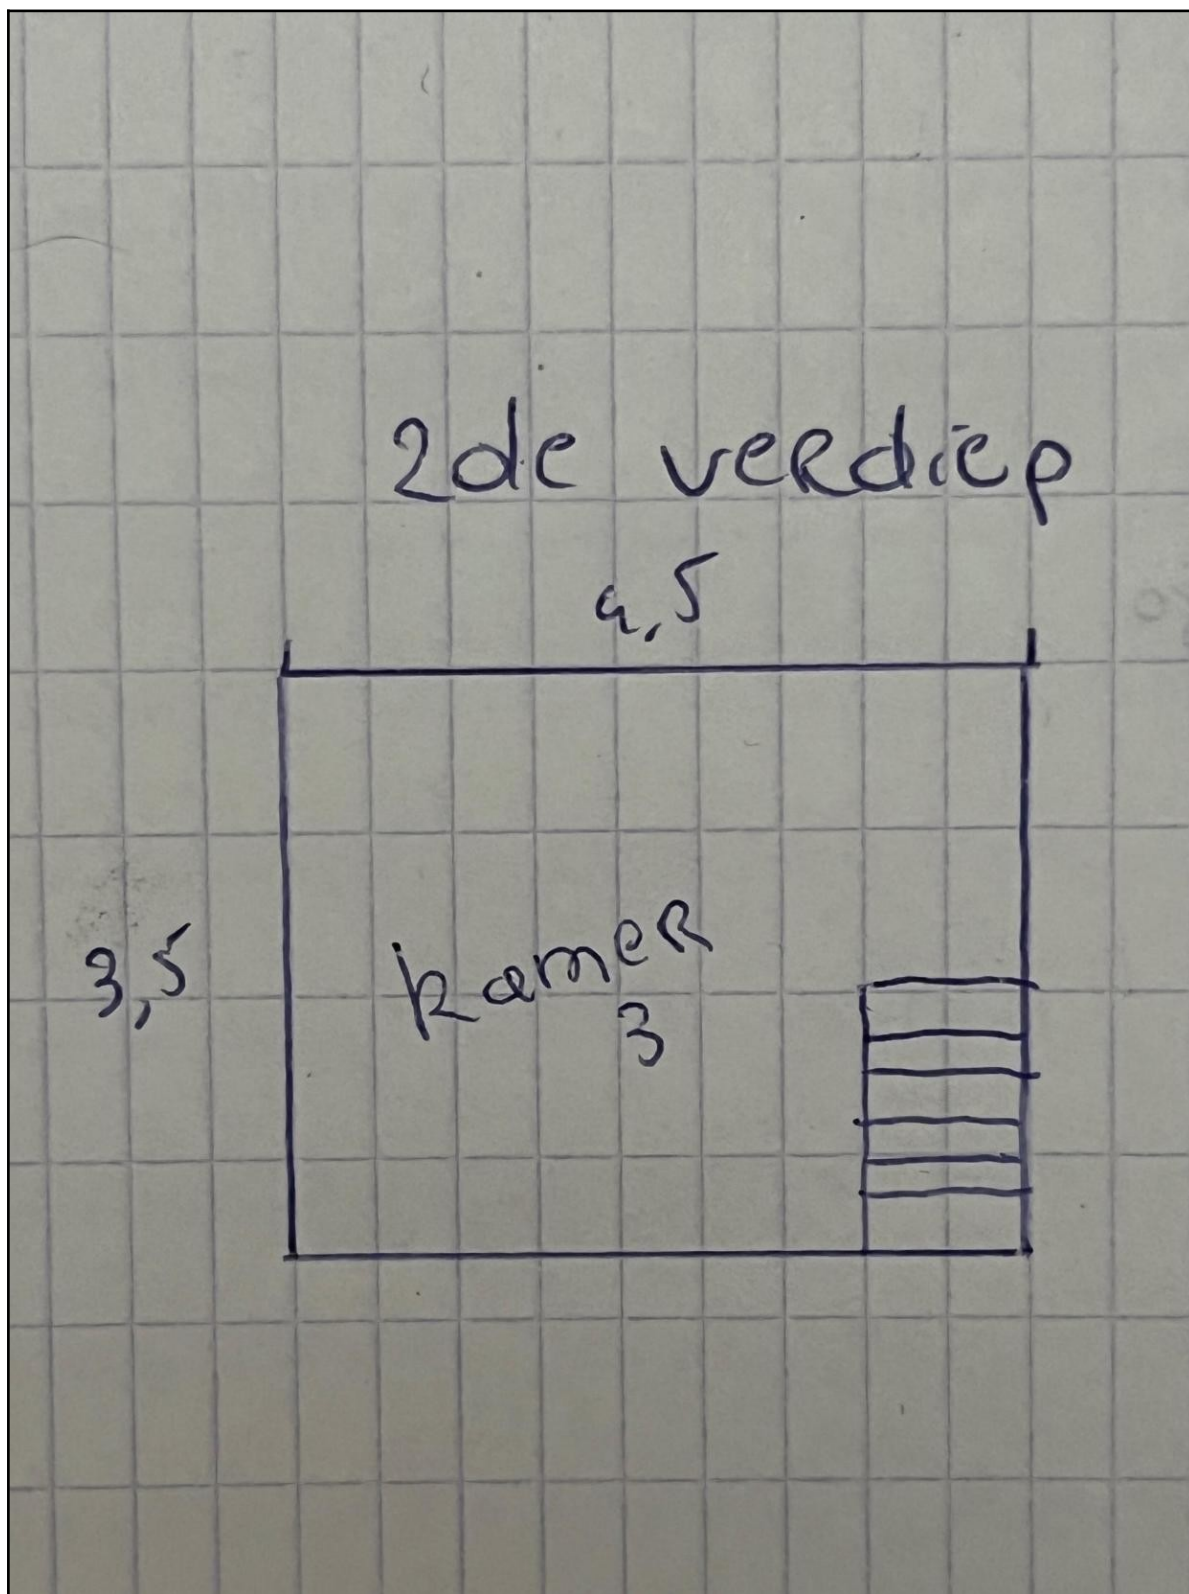 2de verdiep
4,5
3,5
kamer
3